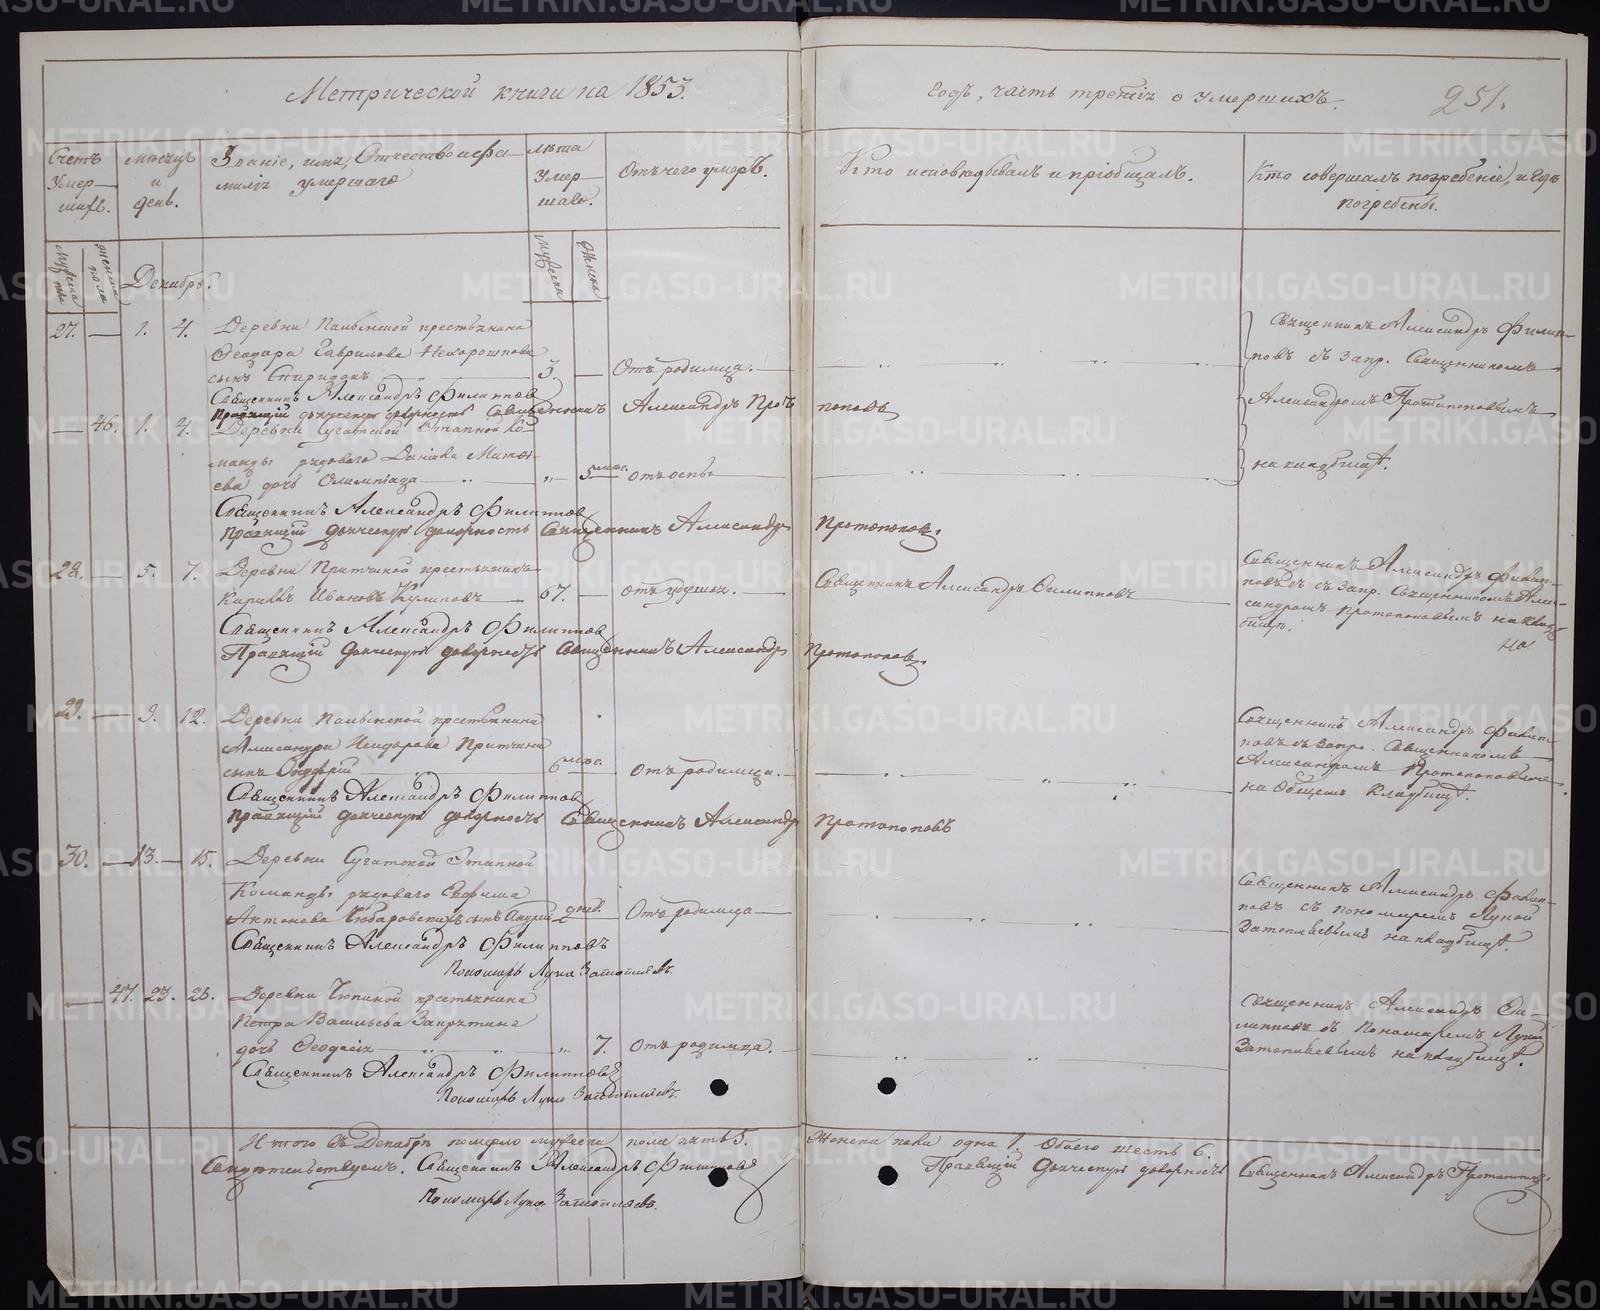 Метрической книги на 1853. годъ, часть третія о умершихъ. 251.
Счетъ умер-шихъ.
Мѣсяцъ и день.
Званіе, имя, Отчество и фа-
милія умершаго
Лѣта умер-шаго.
Отъ чего умеръ.
Кто исповѣдывалъ и пріобщалъ.
Кто совершалъ погребеніе, и гдѣ
погребены.
Декабрь.
27. — 1. 4. Деревни крестьянина
Ѳеодора Гаврилова Нехорошкова
сынъ Спиридонъ 3. — Отъ родимца.
Священникъ Александръ Филип-
повъ съ Запр. Священникомъ
Александромъ Протопоповымъ
на кладбищѣ.
Священникъ Александръ Филипповъ
Правящій дьяческую должность Священникъ Александръ Протопоповъ
— 46. 1. 4. Деревни Сугатской Этапной Ко-
манды рядоваго Данила Матвѣ-
ева дочь Олимпіада „ 5 мѣс. отъ оспы
Священникъ Александръ Филипповъ
Правящій дьяческую должность Священникъ Александръ Протопоповъ.
28. — 5. 7. Деревни Притчиной крестьянинъ
Кириллъ Ивановъ Куликовъ 67. — отъ удушья.
Священникъ Александръ Филипповъ
Священникъ Александръ Филип-
повъ съ Запр. Священникомъ Але-
ксандромъ Протопоповымъ на клад-
бищѣ.
Священникъ Александръ Филипповъ
Правящій дьяческую должность Священникъ Александръ Протопоповъ.
29. — 9. 12. Деревни крестьянина
Александра Притчина
сынъ 6 мѣс. отъ родимца.
Священникъ Александръ Филип-
повъ съ Запр. Священникомъ
Александромъ Протопоповымъ
на Общемъ Кладбищѣ.
Священникъ Александръ Филипповъ
Правящій дьяческую должность Священникъ Александръ Протопоповъ
30. — 13. — 15. Деревни Сугатской Этапной
Команды рядоваго Ефима
Антонова сынъ Андрей дней. Отъ родимца
Священникъ Александръ Филип-
повъ съ пономаремъ Лукой
Затопляевымъ на кладбищѣ.
Священникъ Александръ Филипповъ
Пономарь Лука Затопляевъ.
— 47. 23. 25. Деревни крестьянина
Петра Васильева Запрятина
дочь Ѳеодосія „ 7. Отъ родимца.
Священникъ Александръ Фи-
липповъ съ Пономаремъ Лукой
Затопляевымъ на кладбищѣ.
Священникъ Александръ Филипповъ
Пономарь Лука Затопляевъ.
Итого въ Декабрѣ померло мужеска пола пять 5. Женска пола одна 1. Обоего шесть 6.
Свидѣтельствуемъ. Священникъ Александръ Филипповъ Правящій Дьяческую должность Священникъ Александръ Протопоповъ.
Пономарь Лука Затопляевъ.
METRIKI.GASO-URAL.RU